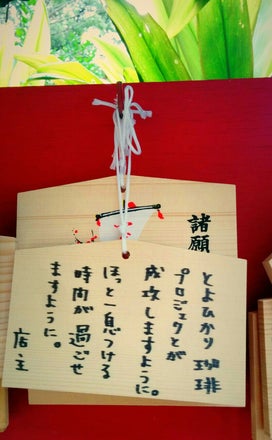 諸願
とよひかり 珈琲
プロジェクとが
成攻しますように。
ほっと一息つける
時間が 過ごせ
ますように。
店主